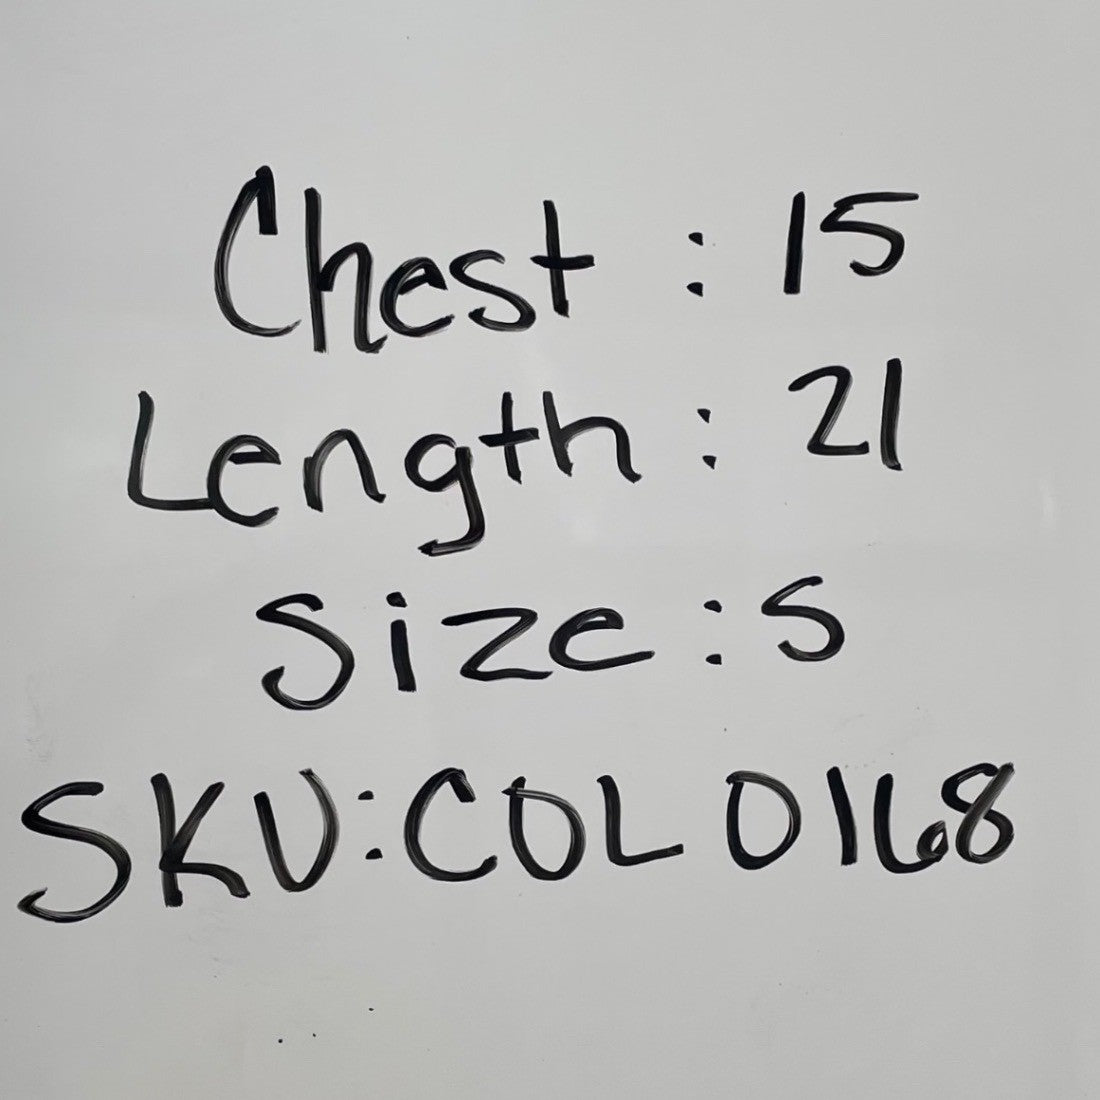 Chest : 15
Length : 21
Size : S
SKU: COL 0168